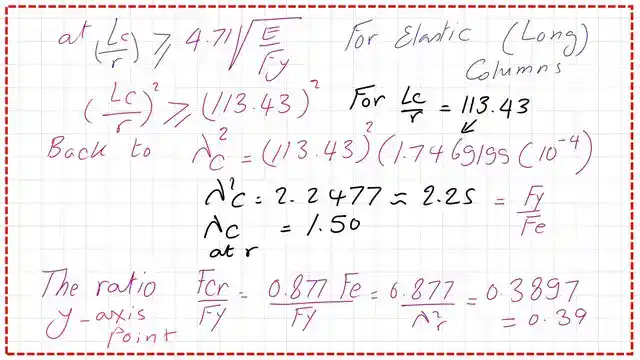 at (Lc/r) ⩾ 4.71√(E/Fy) For Elastic (Long) Columns
(Lc/r)² ⩾ (113.43)² For Lc/r = 113.43
Back to λc² = (113.43)² (1.7469199 (10⁻⁴)
λ²c = 2.2477 ≈ 2.25 = Fy/Fe
λc = 1.50
at r
The ratio Fcr/Fy = 0.877 Fe/Fy = 0.877/λ²r = 0.3897
y-axis point = 0.39